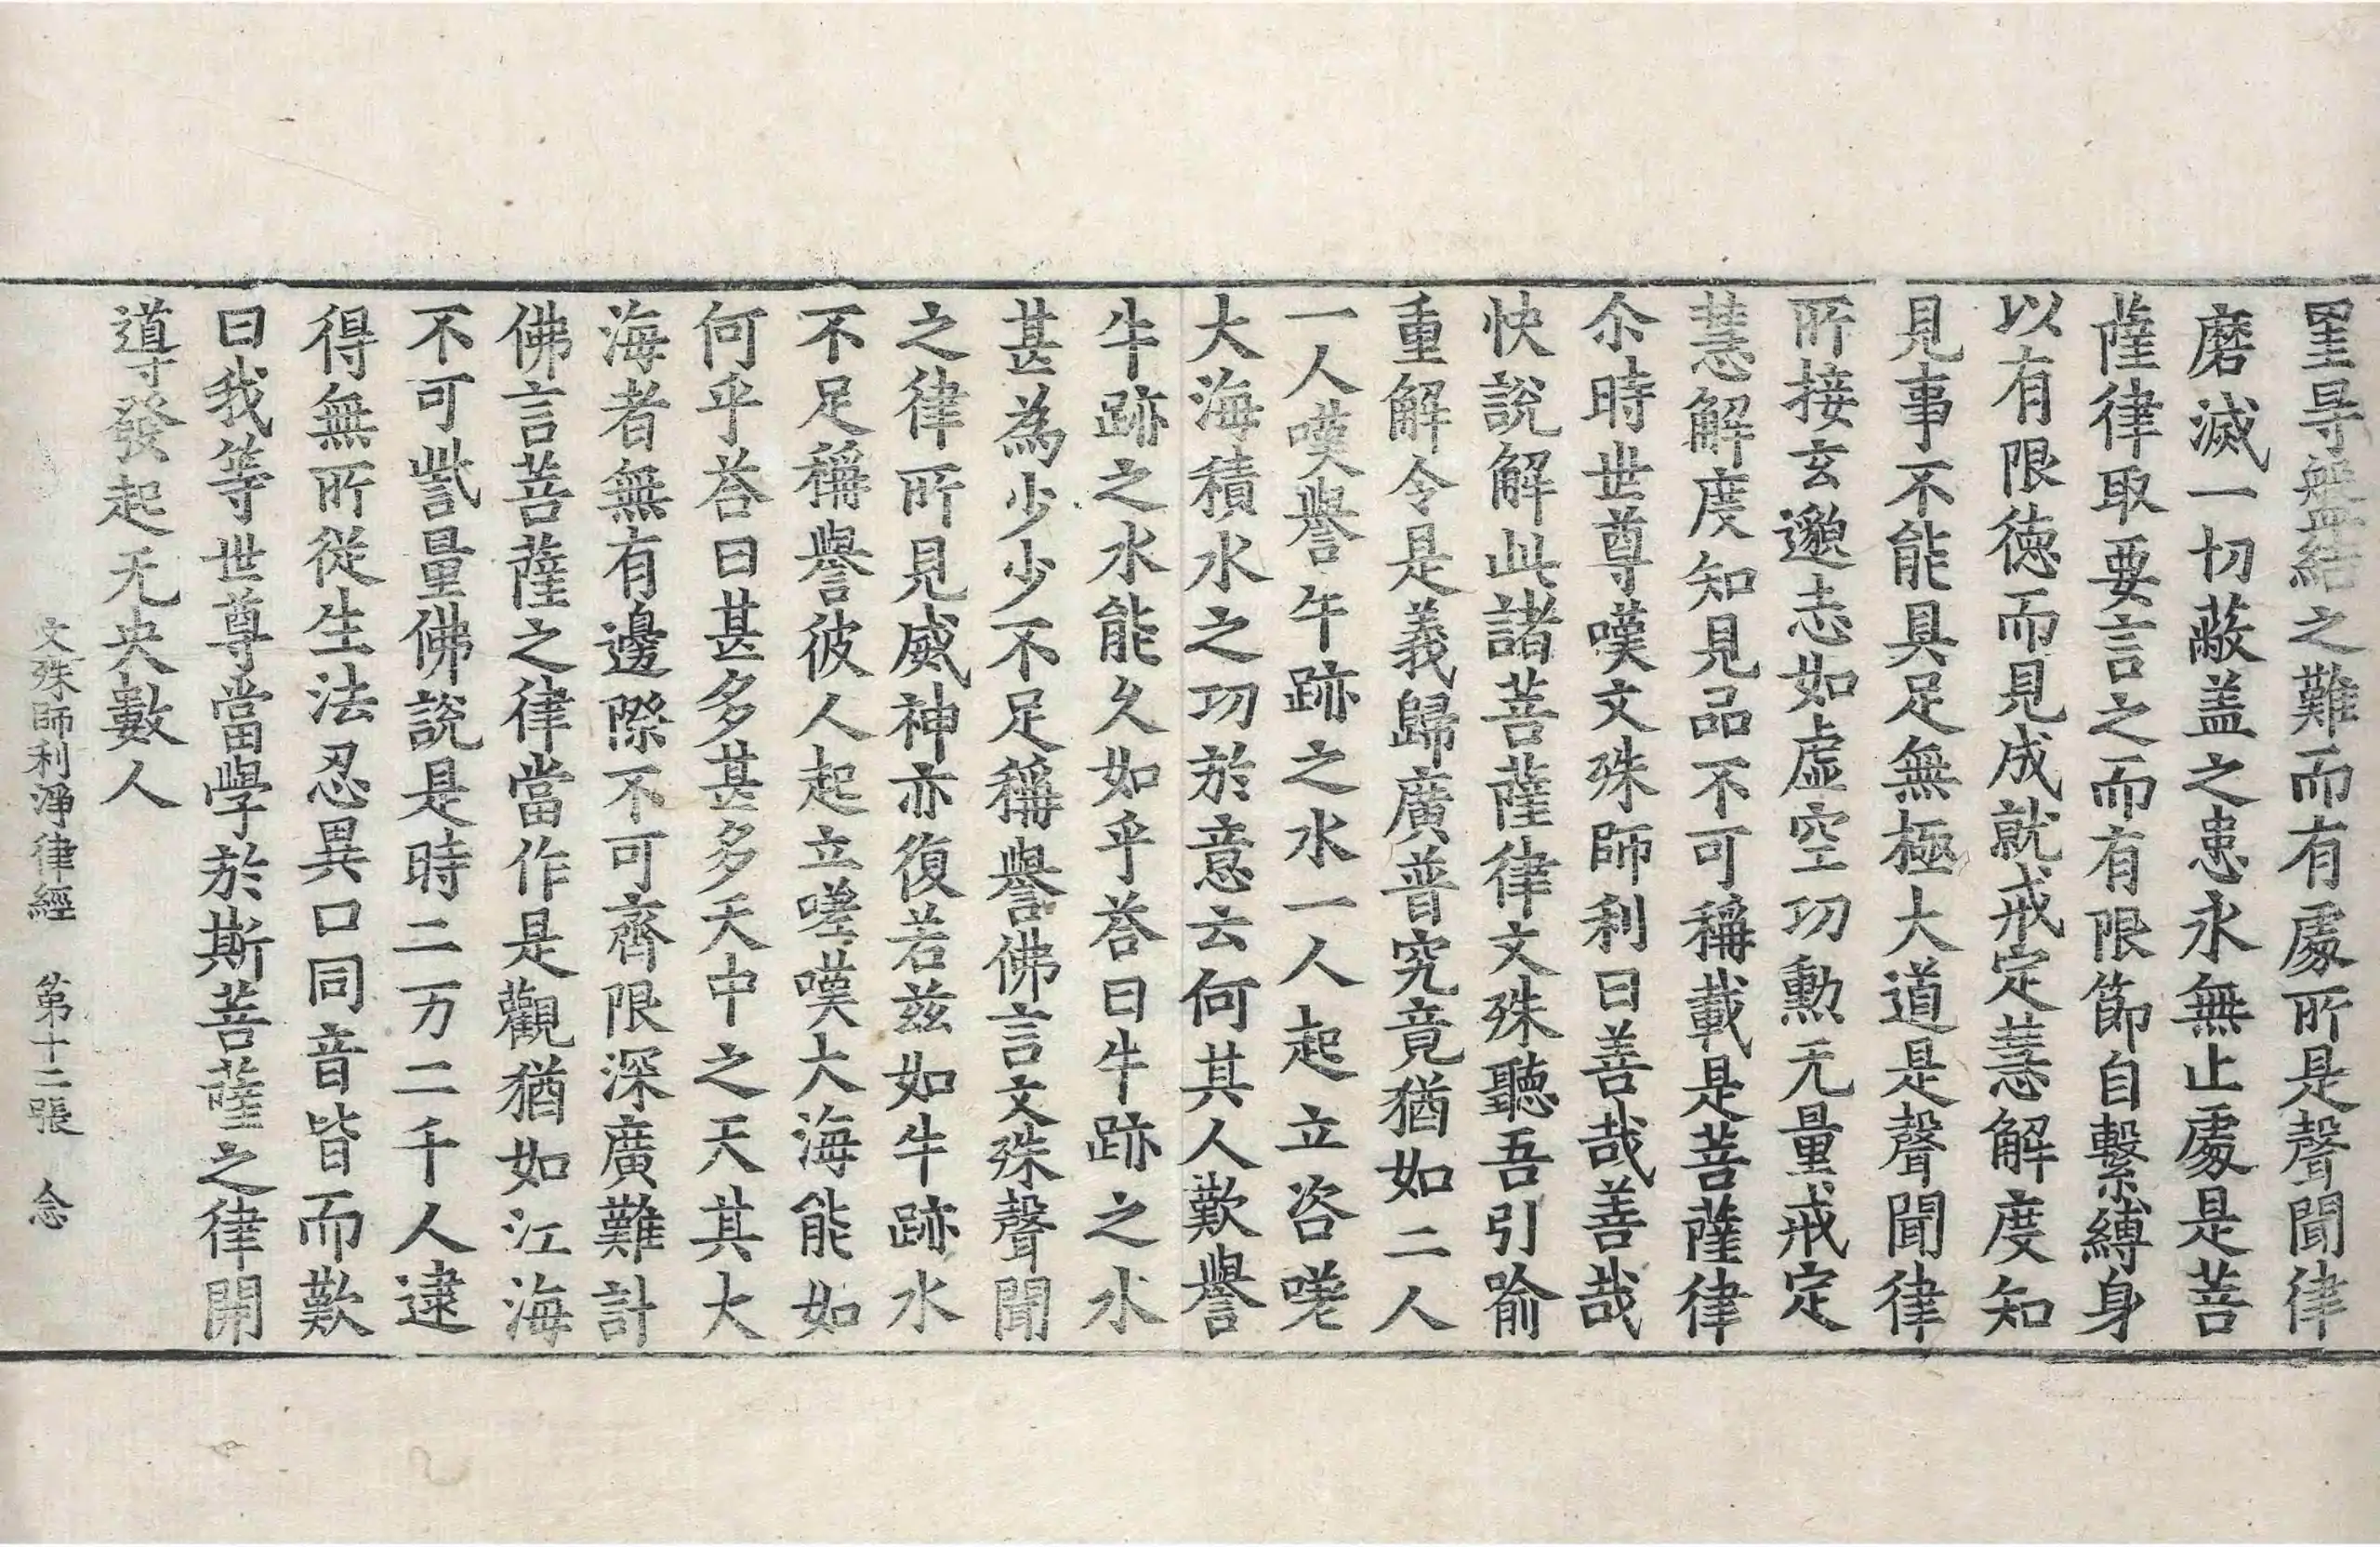 罣㝵盤結之難而有處所是聲聞律
磨滅一切蔽盖之患永無止處是菩
薩律取要言之而有限節自繫縛身
以有限德而見成就戒定慧解度知
見事不能具足無極大道是聲聞律
所接玄邈志如虛空功勳无量戒定
慧解度知見品不可稱載是菩薩律
尒時世尊嘆文殊師利曰善哉善哉
快說解此諸菩薩律文殊聽吾引喻
重解令是義歸廣普究竟猶如二人
一人嘆譽牛跡之水一人起立咨嗟
大海積水之功於意云何其人歎譽
牛跡之水能久如乎荅曰牛跡之水
甚為少少不足稱譽佛言文殊聲聞
之律所見威神亦復若兹如牛跡水
不足稱譽彼人起立嗟嘆大海能如
何乎荅曰甚多甚多天中之天其大
海者無有邊際不可齊限深廣難計
佛言菩薩之律當作是觀猶如江海
不可訾量佛說是時二万二千人逮
得無所從生法忍異口同音皆而歎
曰我等世尊當學於斯菩薩之律開
導發起无央數人
文殊師利淨律經 第十二張 念